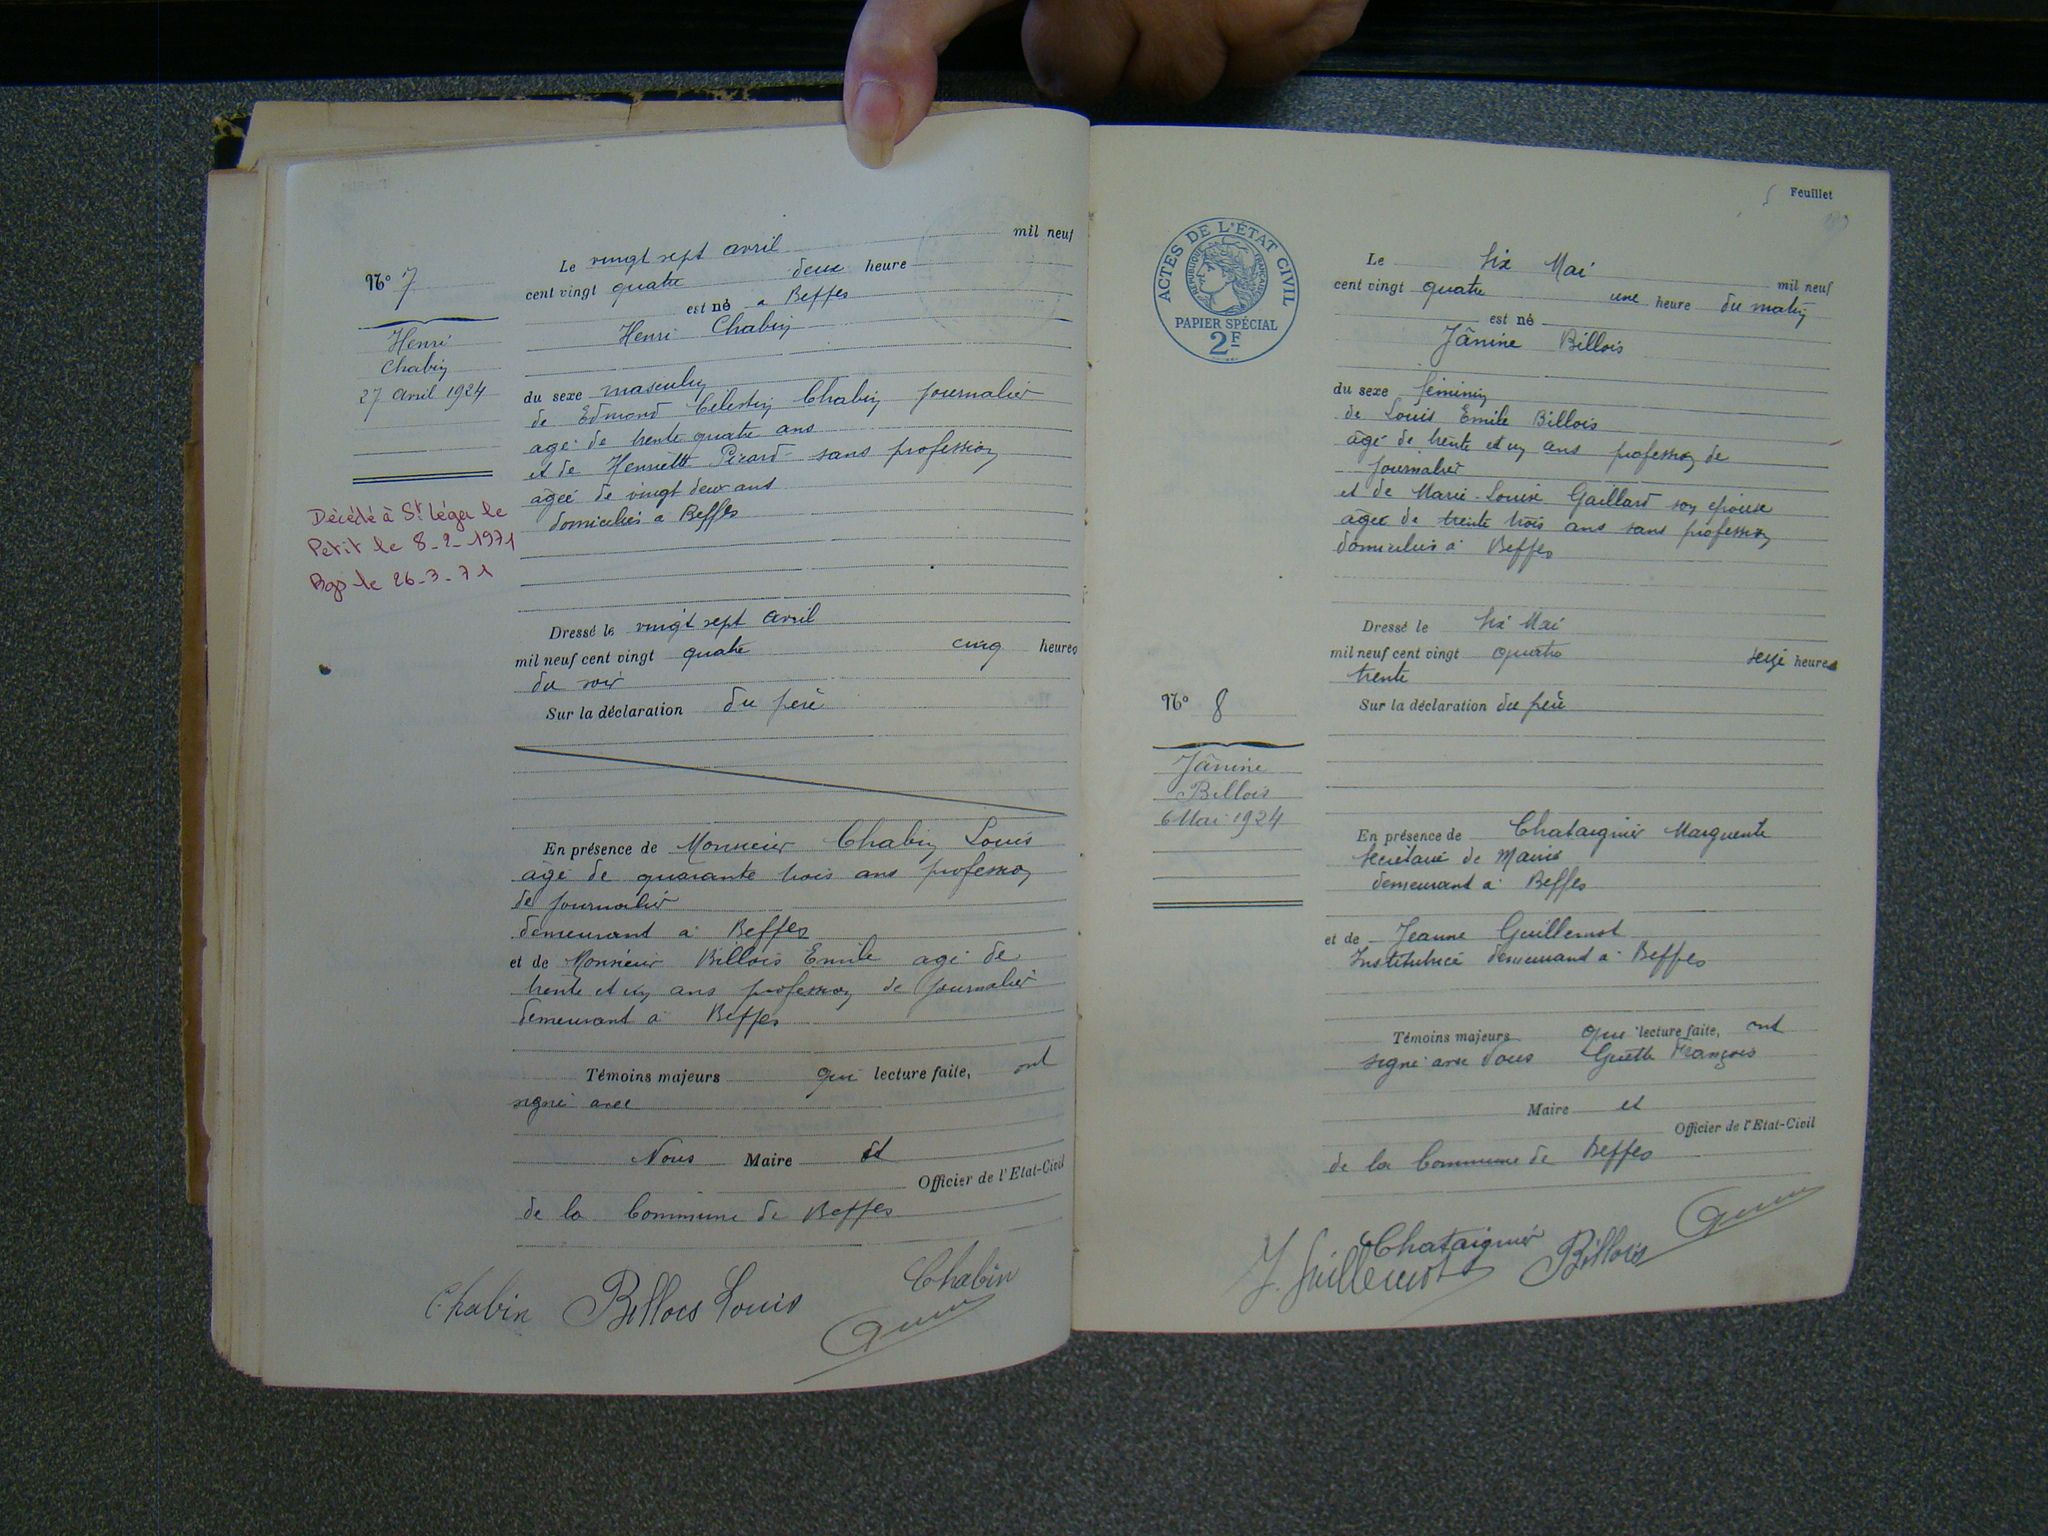 mil neuf
Le vingt sept avril
cent vingt quatre deux heure
est né a Beffes
Henri Chabin
Nº 7
Henri
Chabin
27 Avril 1924
du sexe masculin
de Edmond Célestin Chabin journalier
agé de trente quatre ans
et de Henriette Pirard sans profession
âgée de vingt deux ans
domiciliés à Beffes
Décédé à St Léger le
Petit le 8-2-1971
Bgs le 26-3-71
Dressé le vingt sept avril
mil neuf cent vingt quatre cinq heures
du soir
Sur la déclaration du père
En présence de Monsieur Chabin Louis
âgé de quarante trois ans profession
de journalier
demeurant à Beffes
et de Monsieur Billois Emile agé de
trente et un ans profession de journalier
demeurant à Beffes
Témoins majeurs qui lecture faite, ont
signé avec
Nous Maire et
Officier de l'Etat-Civil
de la Commune de Beffes
Chabin Billois Louis Chabin
Feuillet
ACTES DE L'ÉTAT CIVIL
RÉPUBLIQUE FRANÇAISE
PAPIER SPÉCIAL
2F
Le Six Mai
mil neuf
cent vingt quatre une heure du matin
est né
Jânine Billois
du sexe féminin
de Louis Emile Billois
âgé de trente et un ans profession de
journalier
et de Marie-Louise Gaillard son épouse
agée de trente trois ans sans profession
domiciliés à Beffes
Dressé le Six Mai
mil neuf cent vingt quatre seize heures
trente
Sur la déclaration du père
Nº 8
Jânine
Billois
6 Mai 1924
En présence de Chataignier Marguerite
Secrétaire de Mairie
demeurant à Beffes
et de Jeanne Guillemot
Institutrice demeurant à Beffes
Témoins majeurs que lecture faite, ont
signé avec Nous François
Maire et
Officier de l'Etat-Civil
de la Commune de Beffes
J. Guillemot Chataignier Billois